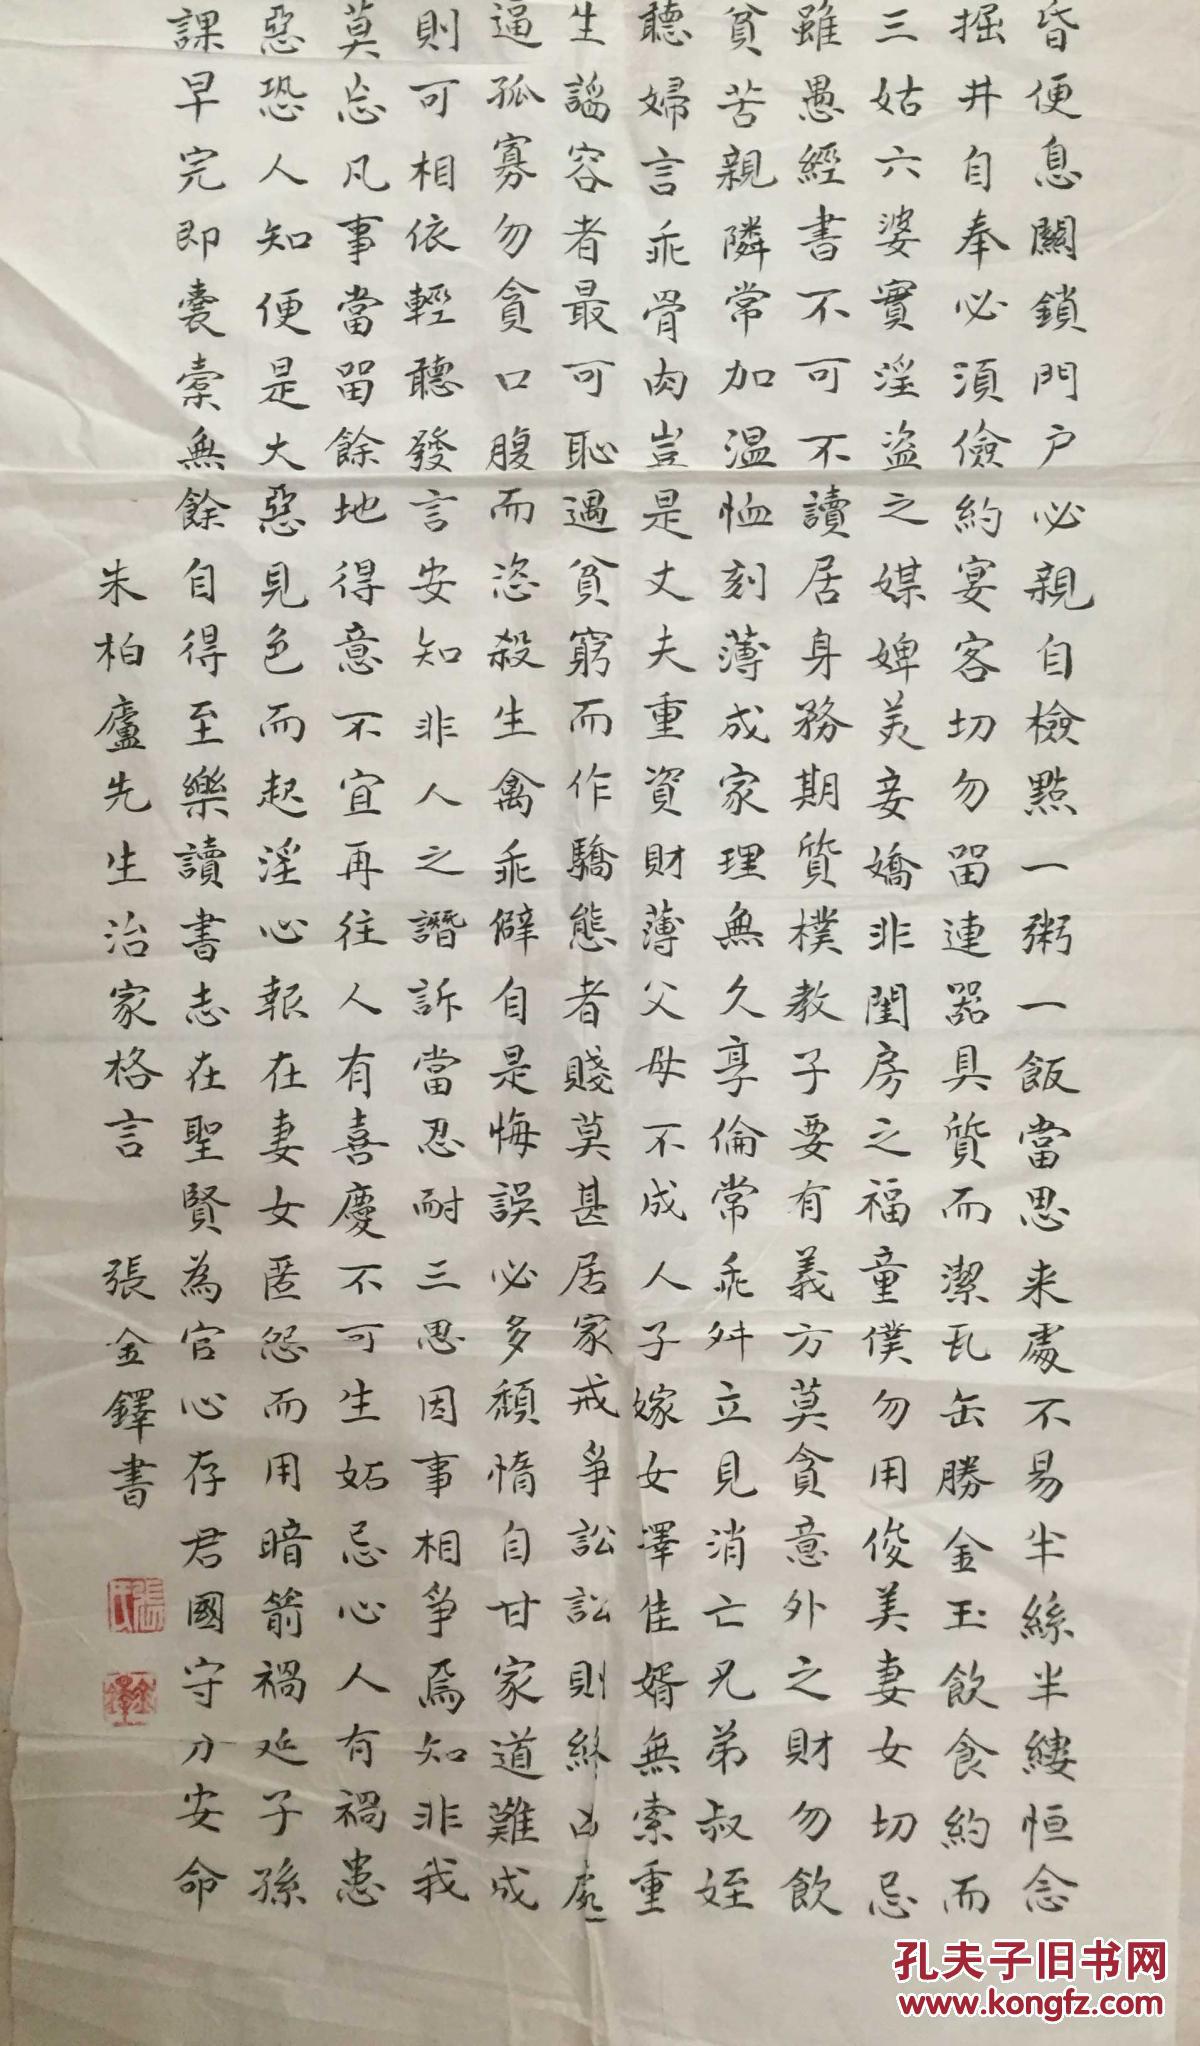 昏便息關鎖門户必親自檢點一粥一飯當思来處不易半絲半縷恒念
掘井自奉必須儉約宴客切勿畱連器具質而潔瓦缶勝金玉飲食約而
三姑六婆實淫盜之媒婢美妾嬌非閨房之福童僕勿用俊美妻女切忌
雖愚經書不可不讀居身務期質樸教子要有義方莫貪意外之財勿飲
貧苦親隣常加温恤刻薄成家理無久享倫常乖舛立見消亡兄弟叔姪
聽婦言乖骨肉豈是丈夫重資財薄父母不成人子嫁女澤佳婿無索重
生謟容者最可恥遇貧窮而作驕態者賤莫甚居家戒爭訟訟則終凶處
逼孤寡勿貪口腹而恣殺生禽乖僻自是悔誤必多頹惰自甘家道難成
則可相依輕聽發言安知非人之譖訴當忍耐三思因事相爭焉知非我
莫忘凡事當畱餘地得意不宜再往人有喜慶不可生妬忌心人有禍患
惡恐人知便是大惡見色而起淫心報在妻女匿怨而用暗箭禍延子孫
課早完即囊橐無餘自得至樂讀書志在聖賢為官心存君國守分安命
朱柏廬先生治家格言 張金鐸書
張氏
金鐸
孔夫子旧书网
www.kongfz.com